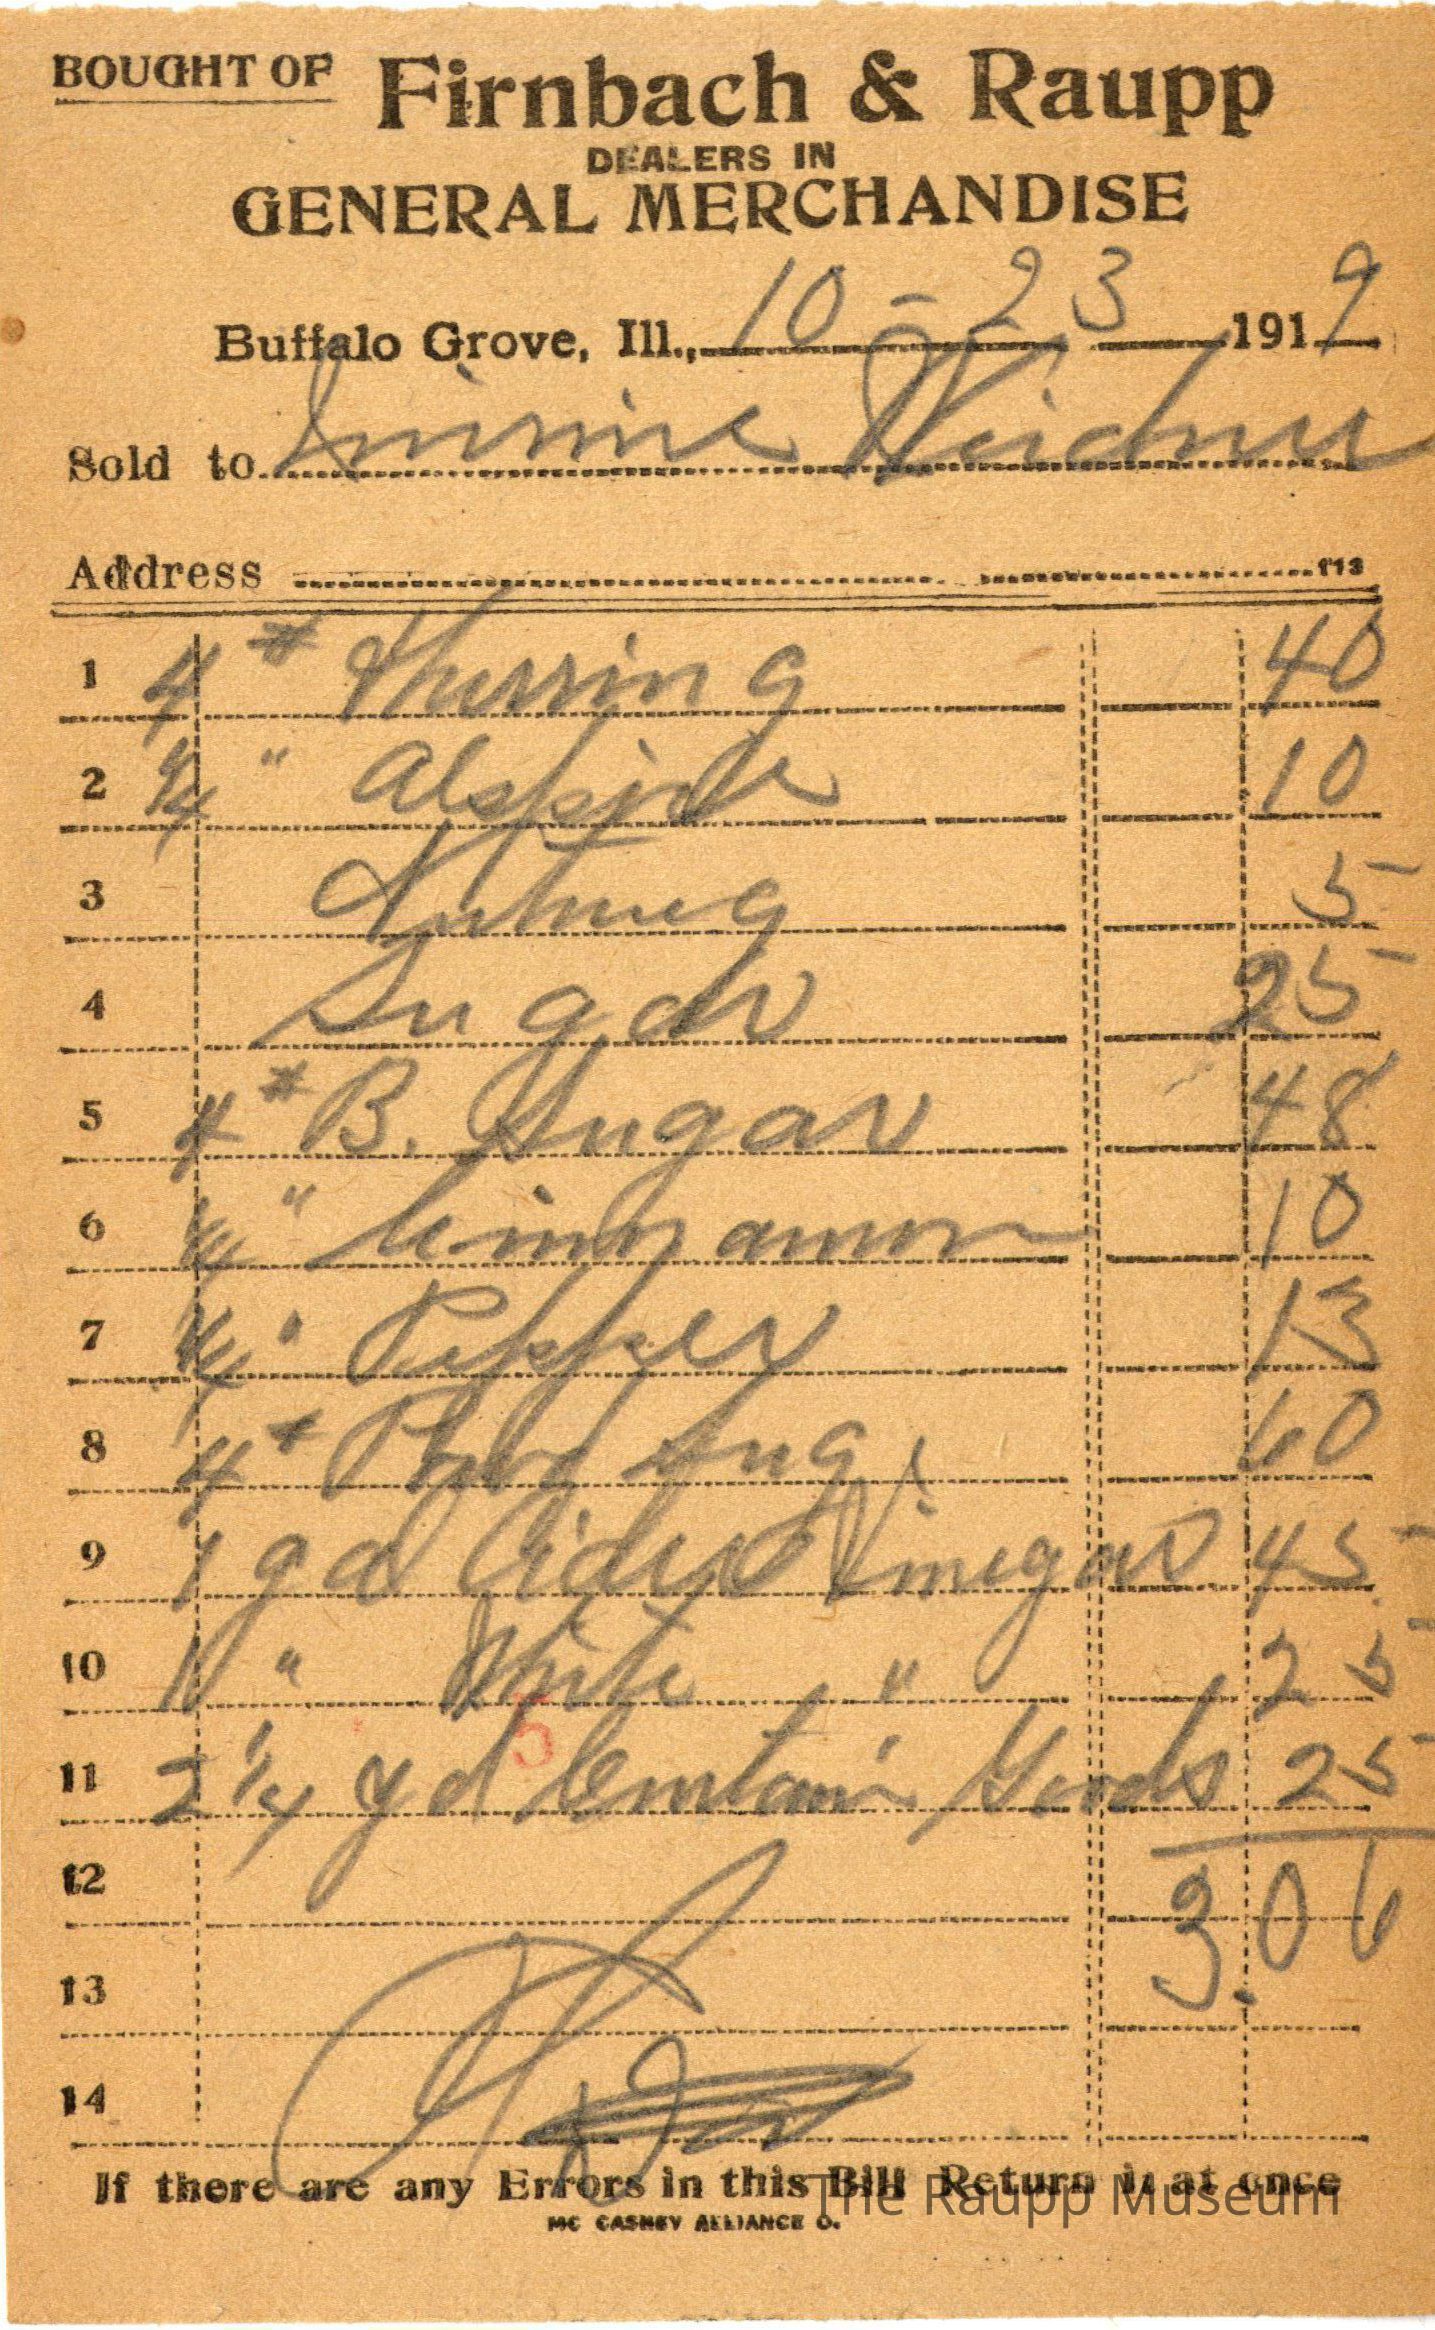 BOUGHT OF Firnbach & Raupp
DEALERS IN
GENERAL MERCHANDISE
Buffalo Grove, Ill., 10 - 23 1919
Sold to Minnie Weidner
Address 113
1 4 # Herring 40
2 1/4 " Alspice 10
3 Nutmeg 5
4 Sugar 25
5 4 # B. Sugar 48
6 1/4 " Cinnamon 10
7 1/4 " Pepper 13
8 4 # Sug. 60
9 1 gal Cider Vinegar 45
10 1 " White " 25
11 2 1/4 yd Curtain Goods 25
12 3.06
13
14
If there are any Errors in this Bill Return it at once
MC CASKEY ALLIANCE O.
The Raupp Museum